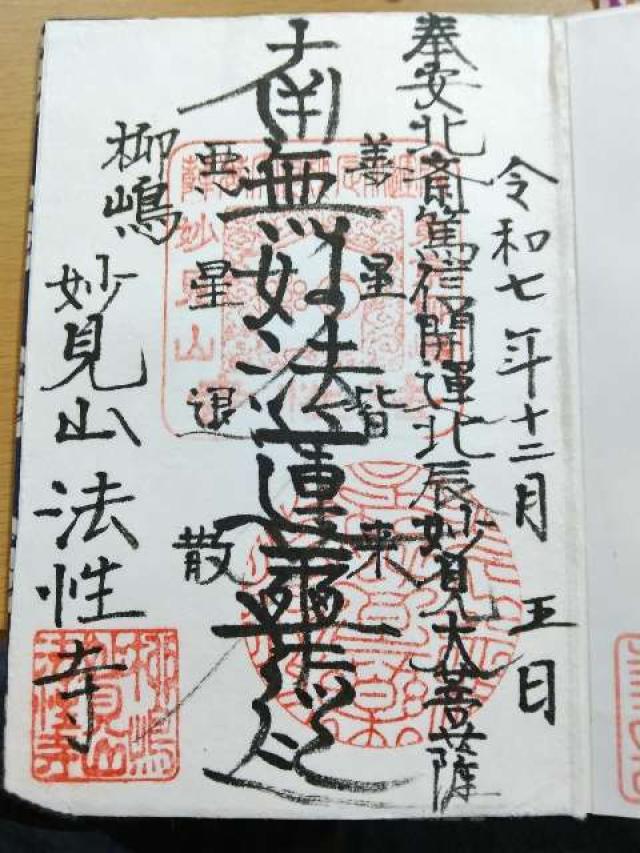 令和七年十二月五日
奉安北斎篤信開運北辰妙見大菩薩
善星皆来
南無妙法蓮華経
悪星退散
柳嶋
妙見山法性寺
柳嶋妙見山法性寺